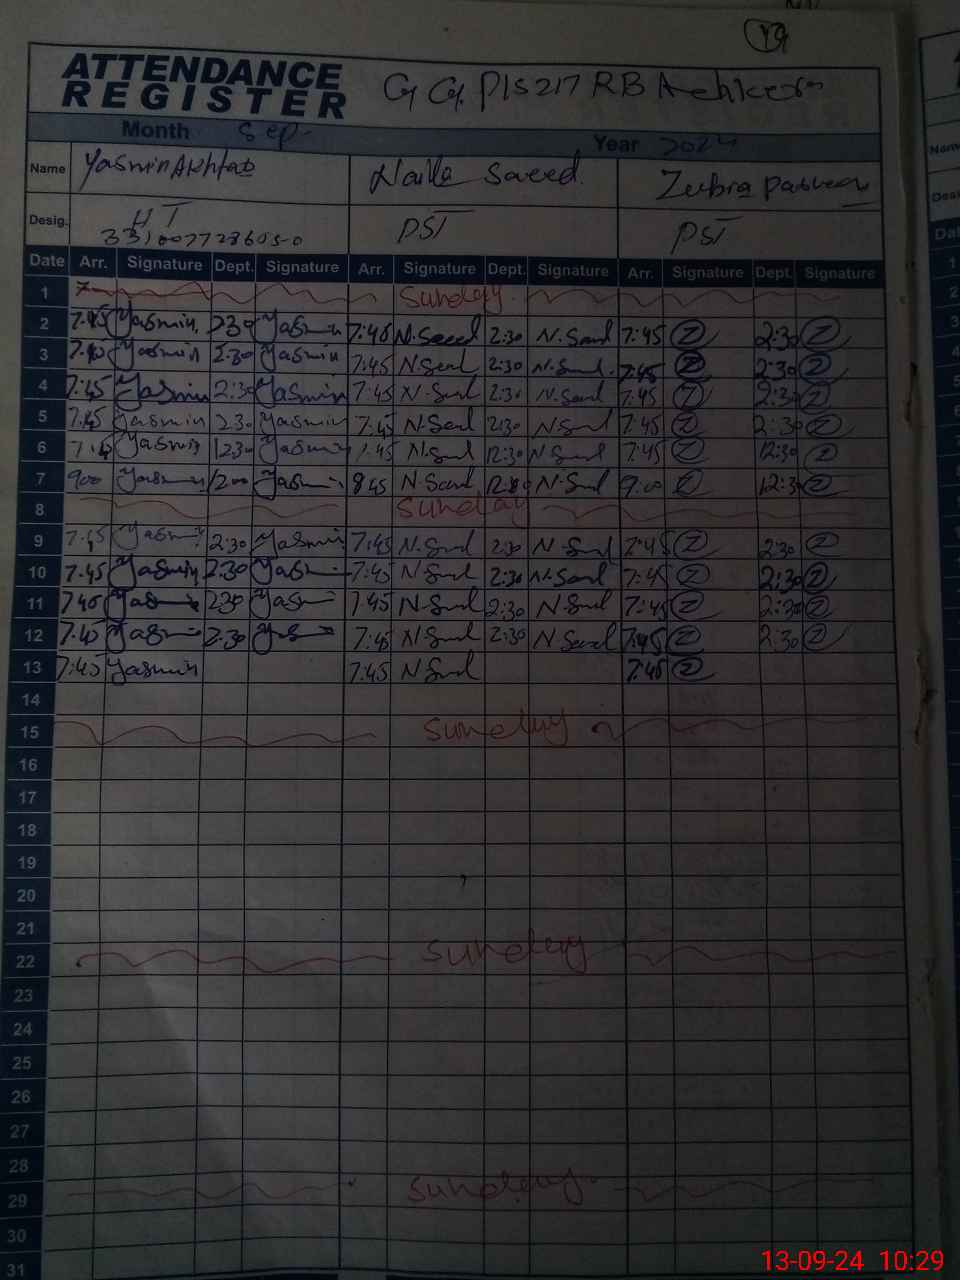 49
ATTENDANCE
REGISTER
Month Sep- Year 2024
Name Yasmin Akhtar Naila Saeed Zubra Parveen
Desig. HT PST PST
Date Arr. Signature Dept. Signature Arr. Signature Dept. Signature Arr. Signature Dept. Signature
1 Sunday
2 7:45 Yasmin 2:30 Yasmin 7:45 N.Saeed 2:30 N.Saed 7:45 Z 2:30 Z
3 7:45 Yasmin 2:30 Yasmin 7:45 N.Saed 2:30 N.Saed 7:45 Z 2:30 Z
4 7:45 Yasmin 2:30 Yasmin 7:45 N.Saed 2:30 N.Saed 7:45 Z 2:30 Z
5 7:45 Yasmin 2:30 Yasmin 7:45 N.Saed 2:30 N.Saed 7:45 Z 2:30 Z
6 Yasmin 12:30 Yasmin 7:45 N.Saed 12:30 N.Saed 7:45 Z 12:30 Z
7 900 Yasmin 1200 Yasmin 845 N.Saed N.Saed 9:00 Z 12:30 Z
8 Sunday
9 7:45 Yasmin 2:30 Yasmin 7:45 N.Saed 2:30 N.Saed 7:45 Z 2:30 Z
10 7:45 Yasmin 2:30 Yasmin 7:45 N.Saed 2:30 N.Saed 7:45 Z 2:30 Z
11 745 Yasmin 230 Yasmin 7:45 N.Saed 2:30 N.Saed 7:45 Z 2:30 Z
12 7:45 Yasmin 2:30 Yasmin 7:45 N.Saed 2:30 N.Saed 7:45 Z 2:30 Z
13 7:45 Yasmin 7:45 N.Saed 7:45 Z
14
15 Sunday
16
17
18
19
20
21
22 Sunday
23
24
25
26
27
28
29 Sunday
30
31
13-09-24 10:29